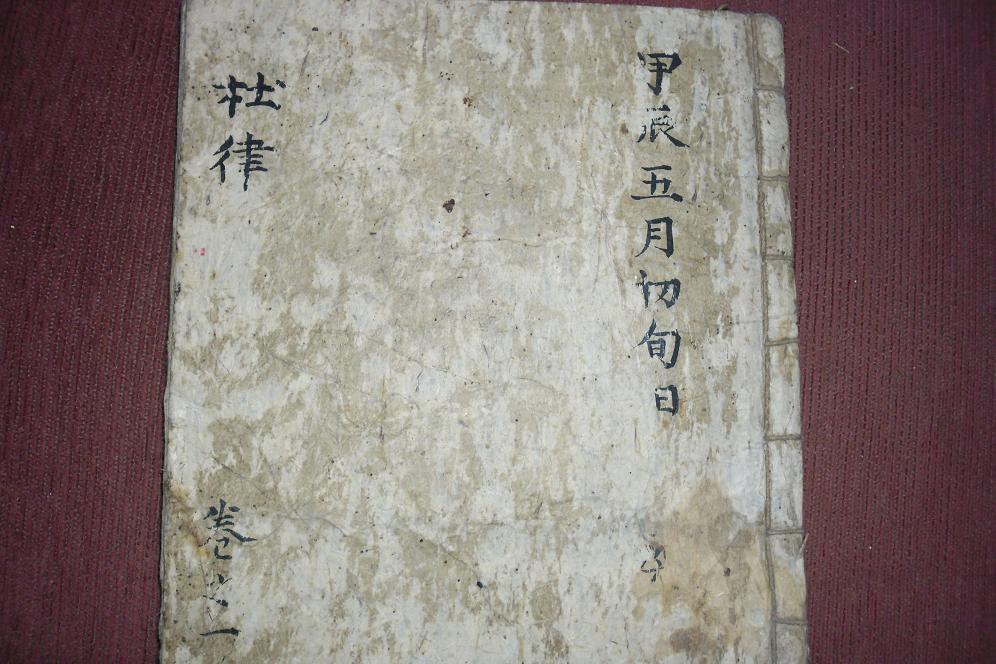 甲辰五月初旬日
杜律
卷之一